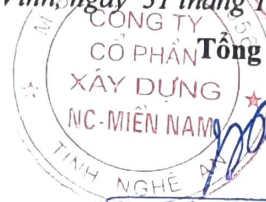 Vinh, ngày 31 tháng 1
CÔNG TY
CỔ PHẦN
Tổng
XÂY DỰNG
NC-MIỀN NAM
TỈNH NGHỆ AN